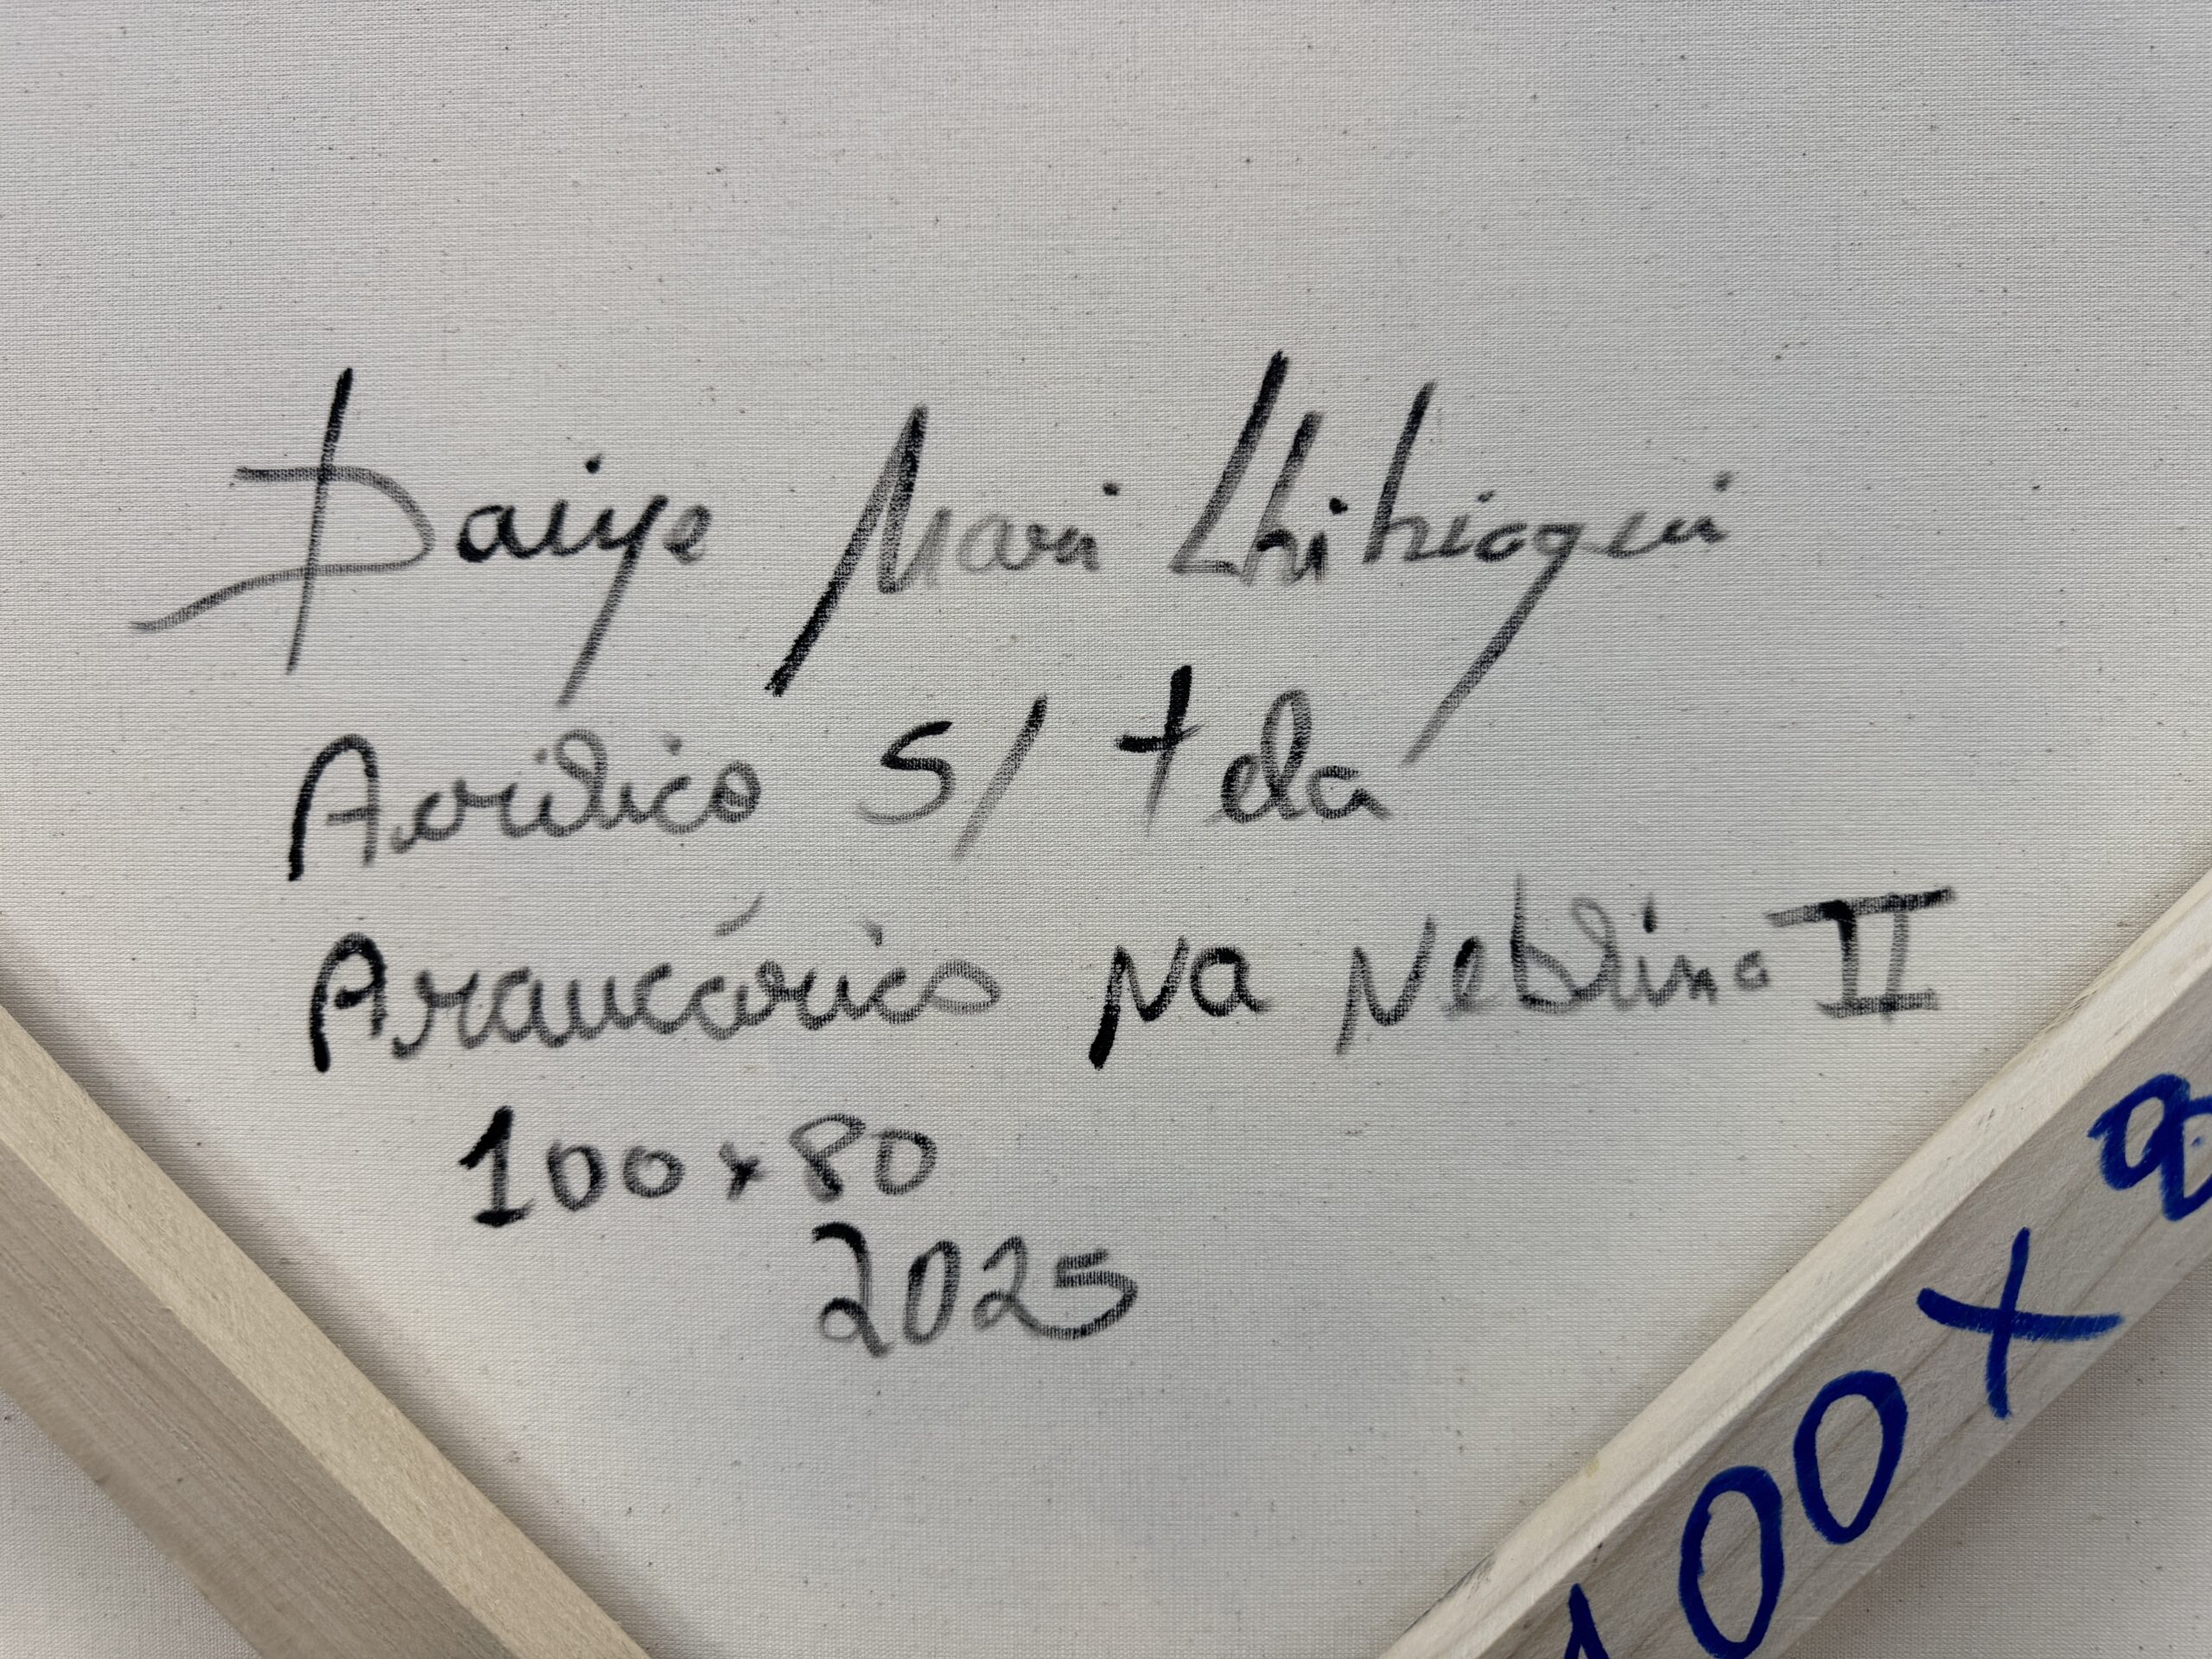 Daiye Mari
Acrílico s/ tela
Araucária Na Neblina II
100 x 80
2025
100 x 8